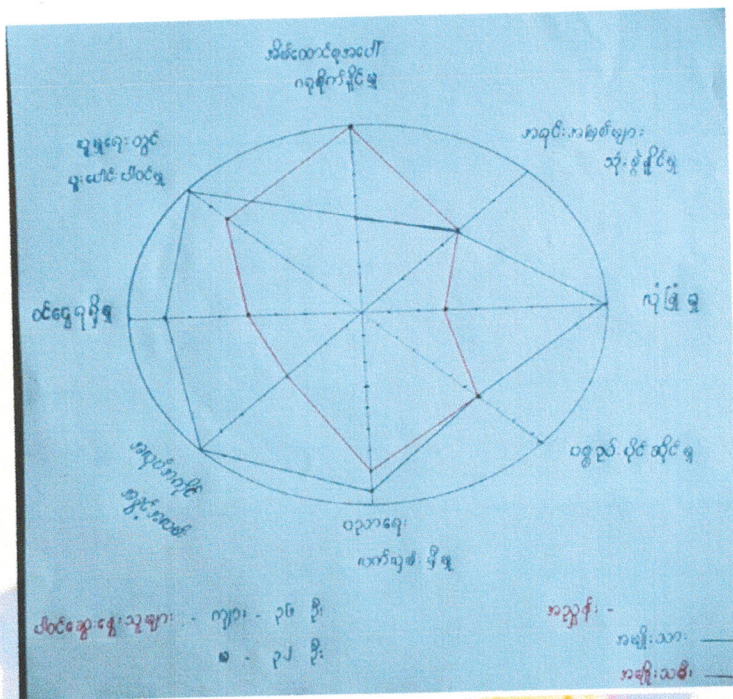 အိမ်ထောင်စုအပေါ်
ဂရုစိုက်နှိုင်မှု
အရင်းအမြစ်များ
သုံးစွဲနှိုင်မှု
လုံခြုံမှု
ပစ္စည်းပိုင်ဆိုင်မှု
ပညာရေး
လက်လှမ်းမှီမှု
အလုပ်အကိုင်
အခွင့်အလမ်း
ဝင်ငွေရရှိမှု
လူမှုရေးတွင်
ပူးပေါင်းပါဝင်မှု
ပါဝင်ဆွေးနွေးသူများ - ကျား - ၃၆ ဦး
မ - ၃၂ ဦး
အညွှန်း -
အမျိုးသား
အမျိုးသမီး